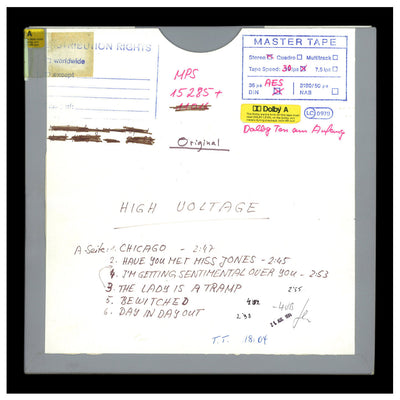 A
DISTRIBUTION RIGHTS
worldwide
except
MASTER TAPE
Stereo Quadro Multitrack
Tape Speed: 30 ips 7,5 ips
35 µs AES
DIN
3180/50 µs
NAB
Dolby A
LC 0979
Dolby Ton am Anfang
MPS
15285 +
Original
HIGH VOLTAGE
A Seite: 1. CHICAGO - 2:47
2. HAVE YOU MET MISS JONES - 2:45
4. I'M GETTING SENTIMENTAL OVER YOU - 2:53
3. THE LADY IS A TRAMP 2'55
5. BEWITCHED 4'02
6. DAY IN DAY OUT 2'33
T.T. 18:04